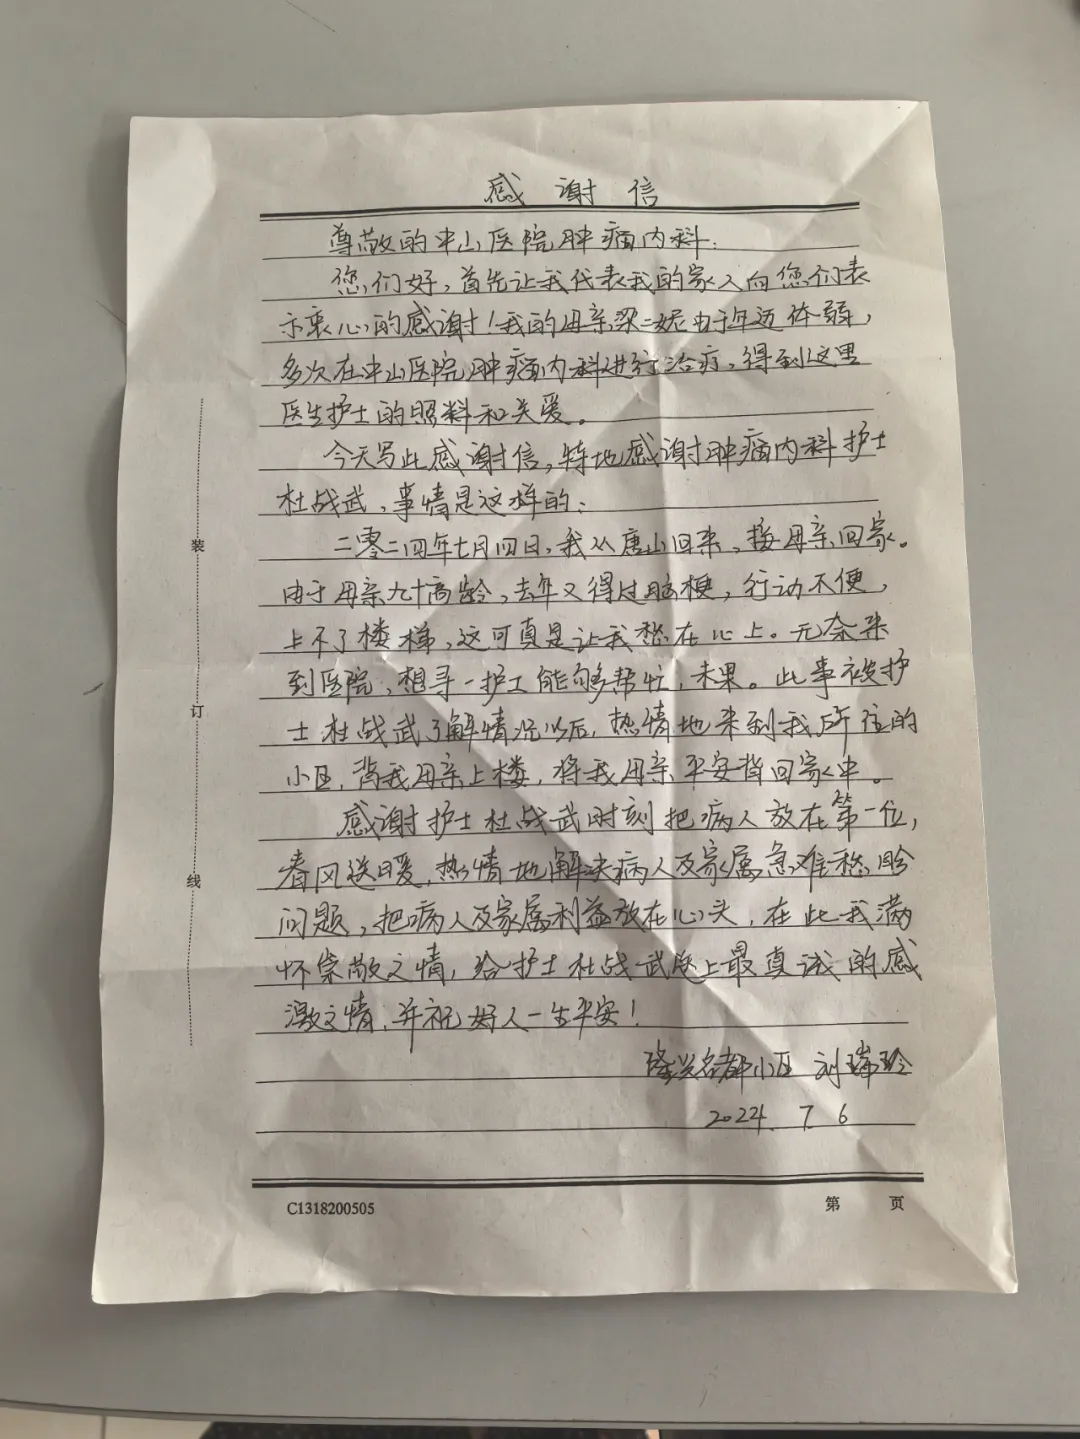 感谢信
尊敬的中山医院肿瘤内科:
您们好,首先让我代表我的家人向您们表
示衷心的感谢!我的母亲梁二妮由于年迈体弱,
多次在中山医院肿瘤内科进行治疗,得到这里
医生护士的照料和关爱。
今天写此感谢信,特地感谢肿瘤内科护士
杜战武,事情是这样的:
二零二四年七月四日,我从唐山回来,接母亲回家。
由于母亲九十高龄,去年又得过脑梗,行动不便,
上不了楼梯,这可真是让我愁在心上。无奈来
到医院,想寻一护工能够帮忙,未果。此事被护
士杜战武了解情况以后,热情地来到我所住的
小区,背我母亲上楼,将我母亲平安背回家中。
感谢护士杜战武时刻把病人放在第一位,
春风送暖,热情地解决病人及家属急难愁盼
问题,把病人及家属利益放在心头,在此我满
怀崇敬之情,给护士杜战武送上最真诚的感
激之情,并祝好人一生平安!
隆兴名都小区 刘瑞玲
2024.7.6
装
订
线
C1318200505
第 页